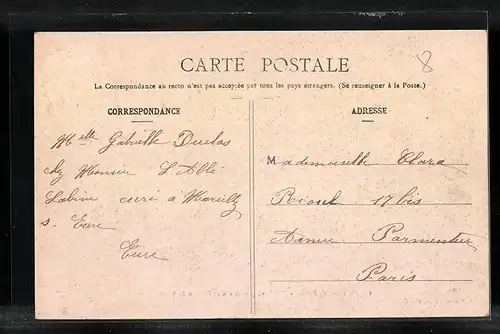 8
CARTE POSTALE
La Correspondance au recto n'est pas acceptée par tous les pays étrangers. (Se renseigner à la Poste.)
CORRESPONDANCE
Melle Gabrielle Duclos
chez Monsieur L'Abbé
curé à Marcilly
s. Eure
Eure
ADRESSE
Mademoiselle Clara
Rioul 17 bis
Avenue Parmentier
Paris